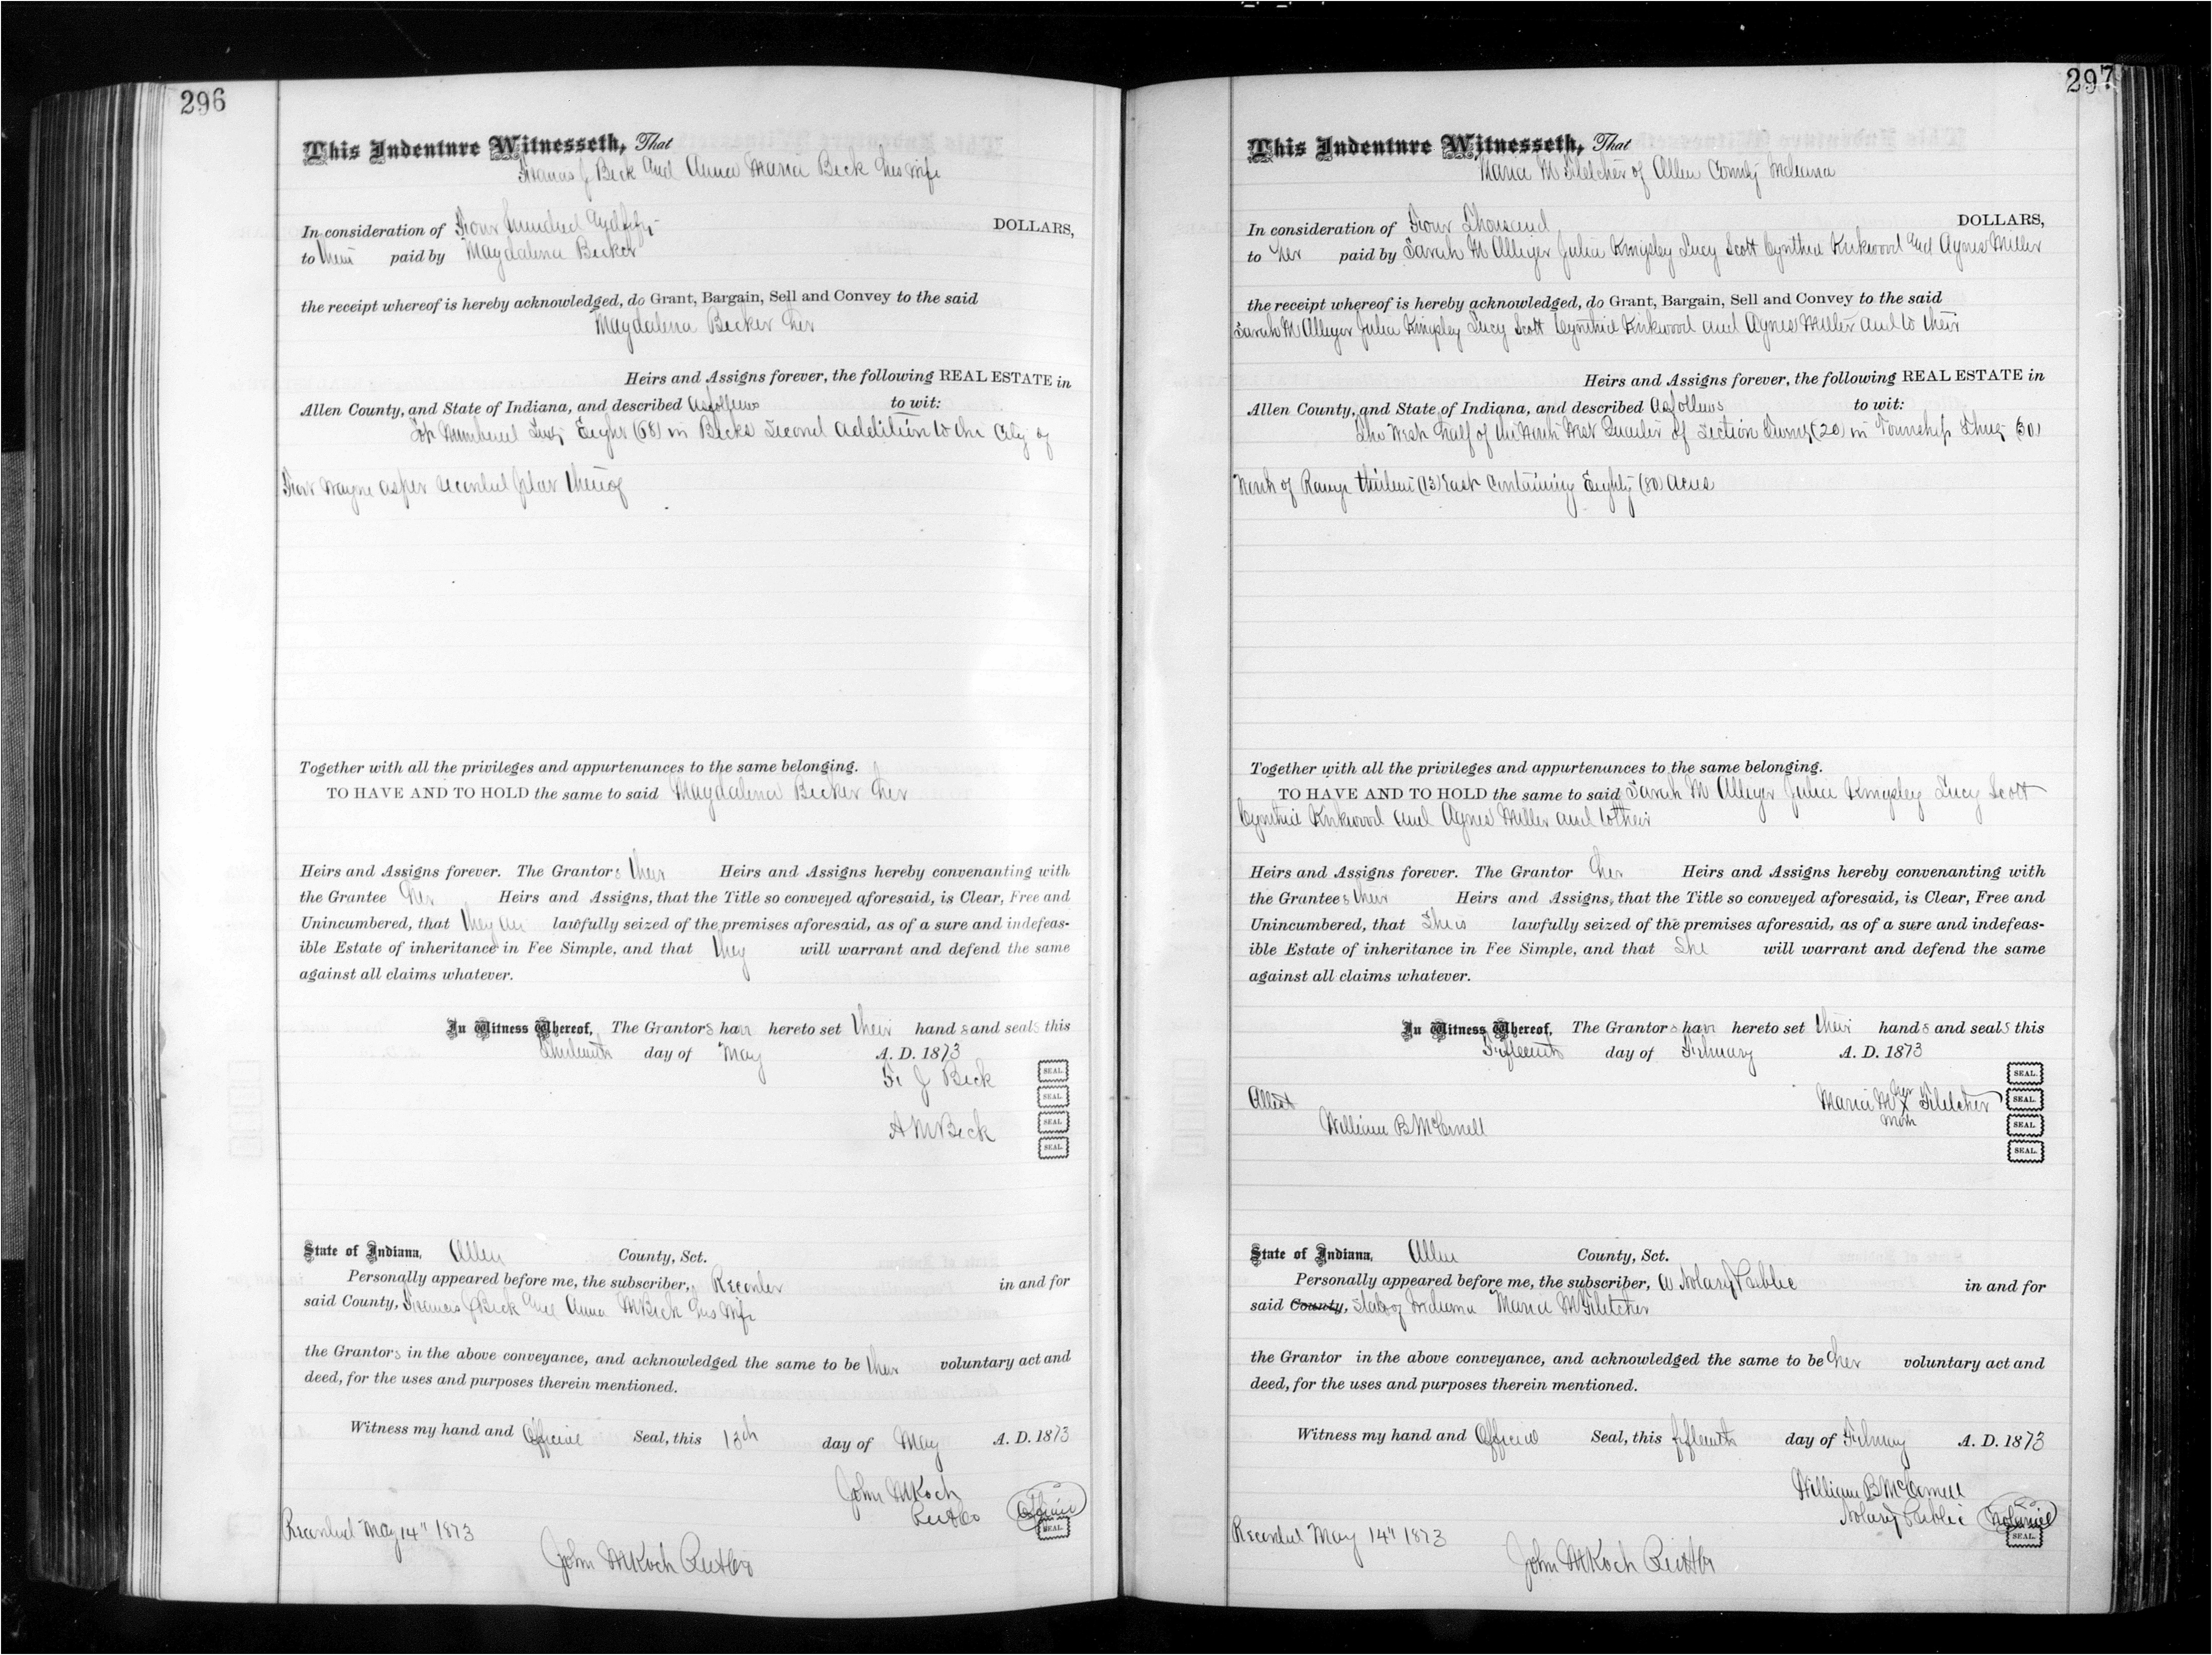 296
This Indenture Witnesseth, That
Francis J Beck and Anna Maria Beck his wife
In consideration of Four hundred and fifty DOLLARS,
to them paid by Magdalena Becker
the receipt whereof is hereby acknowledged, do Grant, Bargain, Sell and Convey to the said
Magdalena Becker her
Heirs and Assigns forever, the following REAL ESTATE in
Allen County, and State of Indiana, and described as follows to wit:
Lot Numbered Sixty Eight (68) in Becks Second Addition to the City of
Fort Wayne as per recorded plat thereof
Together with all the privileges and appurtenances to the same belonging.
TO HAVE AND TO HOLD the same to said Magdalena Becker her
Heirs and Assigns forever. The Grantors their Heirs and Assigns hereby convenanting with
the Grantee her Heirs and Assigns, that the Title so conveyed aforesaid, is Clear, Free and
Unincumbered, that they are lawfully seized of the premises aforesaid, as of a sure and indefeas-
ible Estate of inheritance in Fee Simple, and that they will warrant and defend the same
against all claims whatever.
In Witness Whereof, The Grantors have hereto set their hands and seals this
thirteenth day of May A. D. 1873
F. J Beck SEAL.
SEAL.
A M Beck SEAL.
SEAL.
State of Indiana, Allen County, Sct.
Personally appeared before me, the subscriber, Recorder in and for
said County, Francis J Beck and Anna M Beck his wife
the Grantors in the above conveyance, and acknowledged the same to be their voluntary act and
deed, for the uses and purposes therein mentioned.
Witness my hand and Official Seal, this 13th day of May A. D. 1873
John M Koch
Official
SEAL.
Recorded May 14" 1873
John M Koch
297
This Indenture Witnesseth, That
Maria M Fletcher of Allen County Indiana
In consideration of Four Thousand DOLLARS,
to her paid by Sarah M Alleger Julia Kingsley Lucy Scott Cynthia Kirkwood and Agnes Miller
the receipt whereof is hereby acknowledged, do Grant, Bargain, Sell and Convey to the said
Sarah M Alleger Julia Kingsley Lucy Scott Cynthia Kirkwood and Agnes Miller and to their
Heirs and Assigns forever, the following REAL ESTATE in
Allen County, and State of Indiana, and described as follows to wit:
The West half of the North West Quarter of Section Twenty (20) in Township Thirty (30)
North of Range thirteen (13) East Containing Eighty (80) acres
Together with all the privileges and appurtenances to the same belonging.
TO HAVE AND TO HOLD the same to said Sarah M Alleger Julia Kingsley Lucy Scott
Cynthia Kirkwood and Agnes Miller and to their
Heirs and Assigns forever. The Grantor her Heirs and Assigns hereby convenanting with
the Grantees their Heirs and Assigns, that the Title so conveyed aforesaid, is Clear, Free and
Unincumbered, that She is lawfully seized of the premises aforesaid, as of a sure and indefeas-
ible Estate of inheritance in Fee Simple, and that She will warrant and defend the same
against all claims whatever.
In Witness Whereof, The Grantors have hereto set their hands and seals this
Fifteenth day of February A. D. 1873
SEAL.
Attest Maria M her X mark Fletcher SEAL.
William B McConnell SEAL.
SEAL.
State of Indiana, Allen County, Sct.
Personally appeared before me, the subscriber, a Notary Public in and for
said County, State of Indiana Maria M Fletcher
the Grantor in the above conveyance, and acknowledged the same to be her voluntary act and
deed, for the uses and purposes therein mentioned.
Witness my hand and Official Seal, this fifteenth day of February A. D. 1873
William B McConnell
Notary Public Notarial
SEAL.
Recorded May 14" 1873
John M Koch